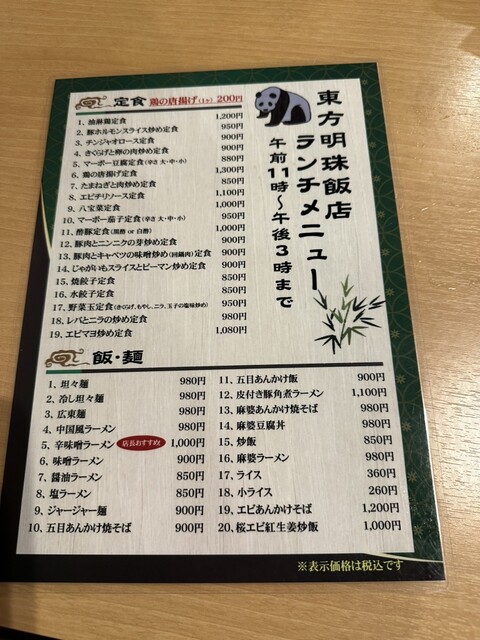 東方明珠飯店
ランチメニュー
午前11時～午後3時まで
定食 鶏の唐揚げ(1ヶ) 200円
1、油淋鶏定食 1,200円
2、豚ホルモンスライス炒め定食 950円
3、チンジャオロース定食 900円
4、きくらげと卵の肉炒め定食 900円
5、マーボー豆腐定食(辛さ 大・中・小) 880円
6、鶏の唐揚げ定食 1,300円
7、たまねぎと肉炒め定食 850円
8、エビチリソース定食 1,100円
9、八宝菜定食 1,000円
10、マーボー茄子定食(辛さ 大・中・小) 950円
11、酢豚定食(黒酢 or 白酢) 1,000円
12、豚肉とニンニクの芽炒め定食 900円
13、豚肉とキャベツの味噌炒め(回鍋肉)定食 900円
14、じゃがいもスライスとピーマン炒め定食 900円
15、焼餃子定食 850円
16、水餃子定食 850円
17、野菜玉定食(きくらげ、もやし、ニラ、玉子の塩味炒め) 950円
18、レバとニラの炒め定食 980円
19、エビマヨ炒め定食 1,080円
飯・麺
1、坦々麺 980円
2、冷し坦々麺 980円
3、広東麺 980円
4、中国風ラーメン 980円
5、辛味噌ラーメン 店長おすすめ! 1,000円
6、味噌ラーメン 900円
7、醤油ラーメン 850円
8、塩ラーメン 850円
9、ジャージャー麺 900円
10、五目あんかけ焼そば 900円
11、五目あんかけ飯 900円
12、皮付き豚角煮ラーメン 1,100円
13、麻婆あんかけ焼そば 980円
14、麻婆豆腐丼 980円
15、炒飯 850円
16、麻婆ラーメン 980円
17、ライス 360円
18、小ライス 260円
19、エビあんかけそば 1,200円
20、桜エビ紅生姜炒飯 1,000円
※表示価格は税込です